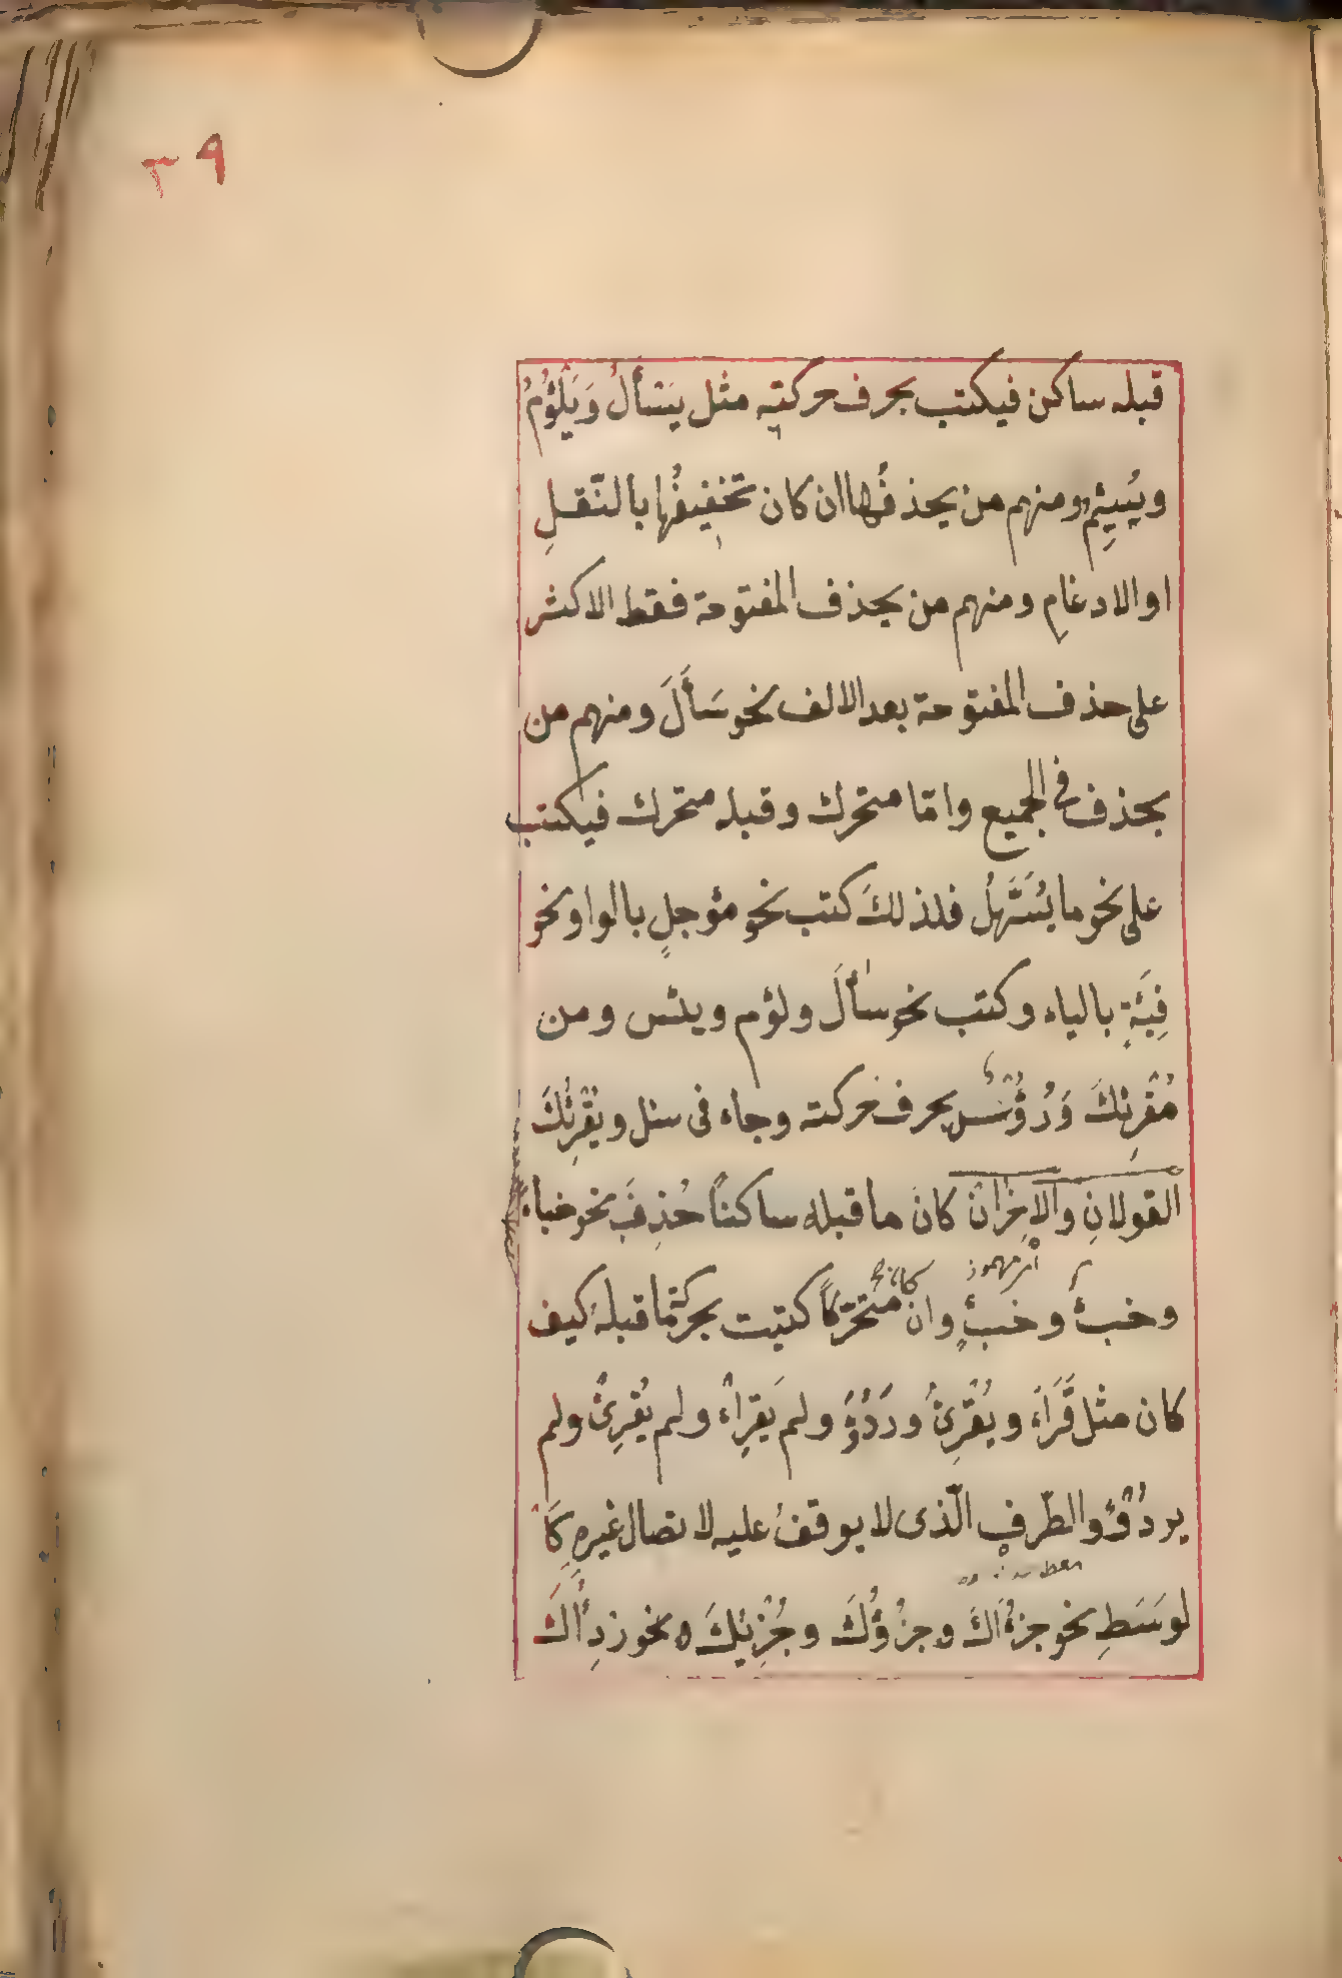 ٣٩
قبله ساكن فيكتب بحرف حركته مثل يَسْأَلُ وَيَلْؤُمُ
ويُسْئِمُ ومنهم من يحذفُها ان كان تخفيفُها بالنّقلِ
او الادغامِ ومنهم من يحذف المفتوحة فقط الاكثر
على حذف المفتوحة بعد الالف نحو سَأَلَ ومنهم من
يحذف فى الجميع وامّا متحرك وقبله متحرك فيكتب
على نحو ما يُسَهَّلُ فلذلكَ كتب نحو مؤجلٍ بالواو ونحو
فِئَةٍ بالياء وكتب نحو سأَلَ ولؤم ويئس ومن
مُقْرِئِكَ وَرُؤُسٌ بحرف حركته وجاء فى سئل ويُقْرِئُكَ
القولانِ والاخِرُ ان كانَ ما قبله ساكناً حُذِفَ نحو خباءً
وخبءٌ وخبءٍ وان كان متحرّكاً كتبت بحركة ما قبلهُ كيف
كان مثل قَرَاءَ ويُقْرِئُ ورَدُؤَ ولم يَقرِاءْ ولم يُقْرِئْ ولم
يردُؤْ والطّرفِ الّذى لا يوقفُ عليه لاتصال غيرِهِ كَا
لوَسَطِ نحو جزءُاَكَ وجزْؤُكَ وجُزْئِكَ ونحو رِدْأَكَ